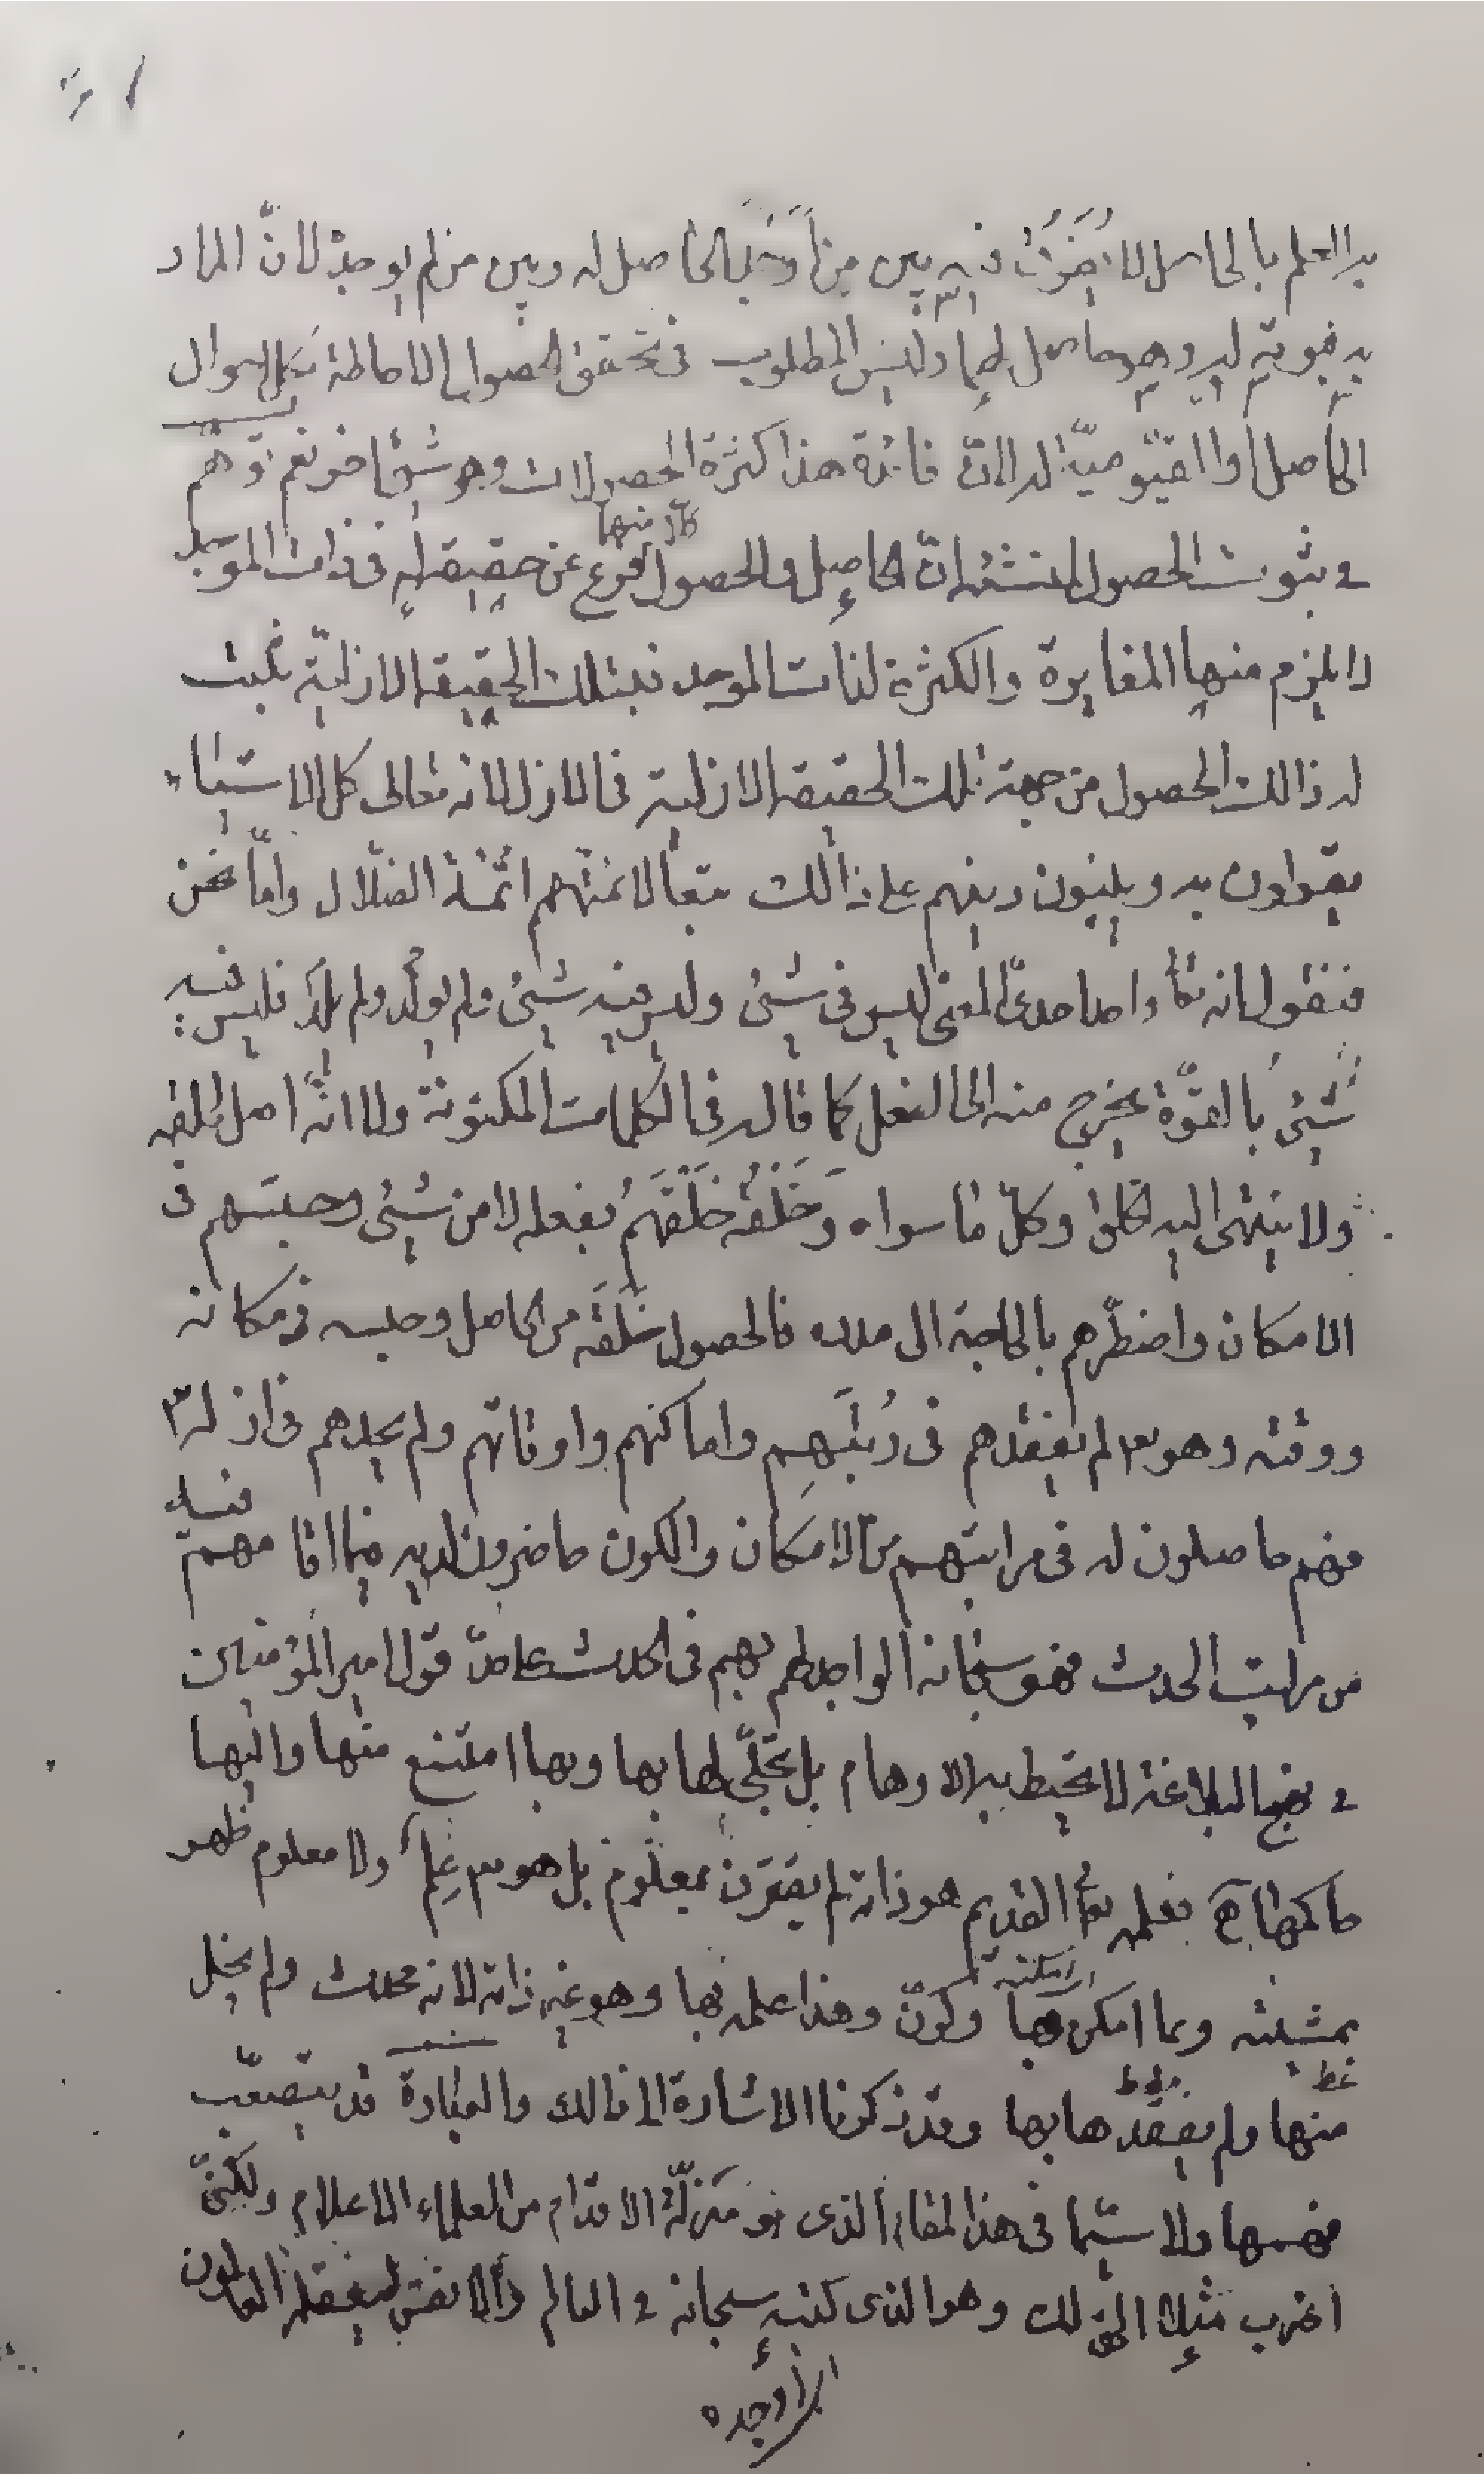 به العلم بالحاصل لا فرق فيه بين من اوجد الحاصل له وبين من لم يوجد لانّ المراد
به ثبوته لديه وهو حاصل لهما وليس المطلوب فى تحقق الحصول الاحاطة بكل احوال
الحاصل او القيّوميّة له الان فائدة هذا كثرة الحصولات وهو شئ اخر نعم توهّم
فى ثبوت الحصول انّ الحاصل والحصول فرع عن حقيقة له فى ذات الموجد
لا يلزم منها المغايرة والكثرة لذات الموجد فبتلك الحقيقة الازليّة يثبت
له ذالك الحصول من جهة تلك الحقيقة الازلية فى الازل لانه تعالى كل الاشياء
يقولون به ويبنون دينهم على ذالك تبعاً لائمتهم ائمّة الضّلال وامّا نحن
فنقول انه تعا واحد احدىّ المعنى ليس فى شيئ وليس فيه شيئ ولم يولد ولم يلد فليس فيه
شيئ بالقوّة يخرج منه الى الفعل كما قاله فى الكلمات المكنونة ولا انّه اصل لخلقه
ولا ينتهى اليه الخلق وكلّ ما سواه وَخَلْقُه خلَقَهم بفعله لا من شيئ وحبسهم فى
الامكان واضطرّهم بالحاجة الى مدده فالحصول خَلَقَه من الحاصل وحبسه فى مكانه
ووقته وهو تعا لم يفقدهم فى رُتَبِهِم واماكنهم واوقاتهم ولم يجدهم فى ازله
فهم حاصلون له فى مراتبهم من الامكان والكون حاضرون لديه فيما اقامهم فيه
من مراتب الحدث فهو سبحانه الواجد لهم بهم فى الحدث على حدّ قول امير المؤمنين
فى نهج البلاغة لا تحيط به الاوهام بل تجلّى لها بها وبها امتنع منها واليها
حاكمها فعلمه تعا القديم هو ذاته لم يقترن بمعلوم بل هو تعا عِلم ولا معلوم ظهر
بمشيئته وبما امكن بها وكوّن وهذا علمه بها وهو غير ذاته لانه محدث ولم يخل
منها ولم يفقدها بها وقد ذكرنا الاشارة الى ذالك والعبارة قد يتصعّب
فهمها ولا سيّما فى هذا المقام الذى هو مَزلّة الاقدام من العلماء الاعلام ولكنّى
اضرب مثلا لذلك وهو الذى كتبه سبحانه فى العالم والانفس ليعقله العالمون